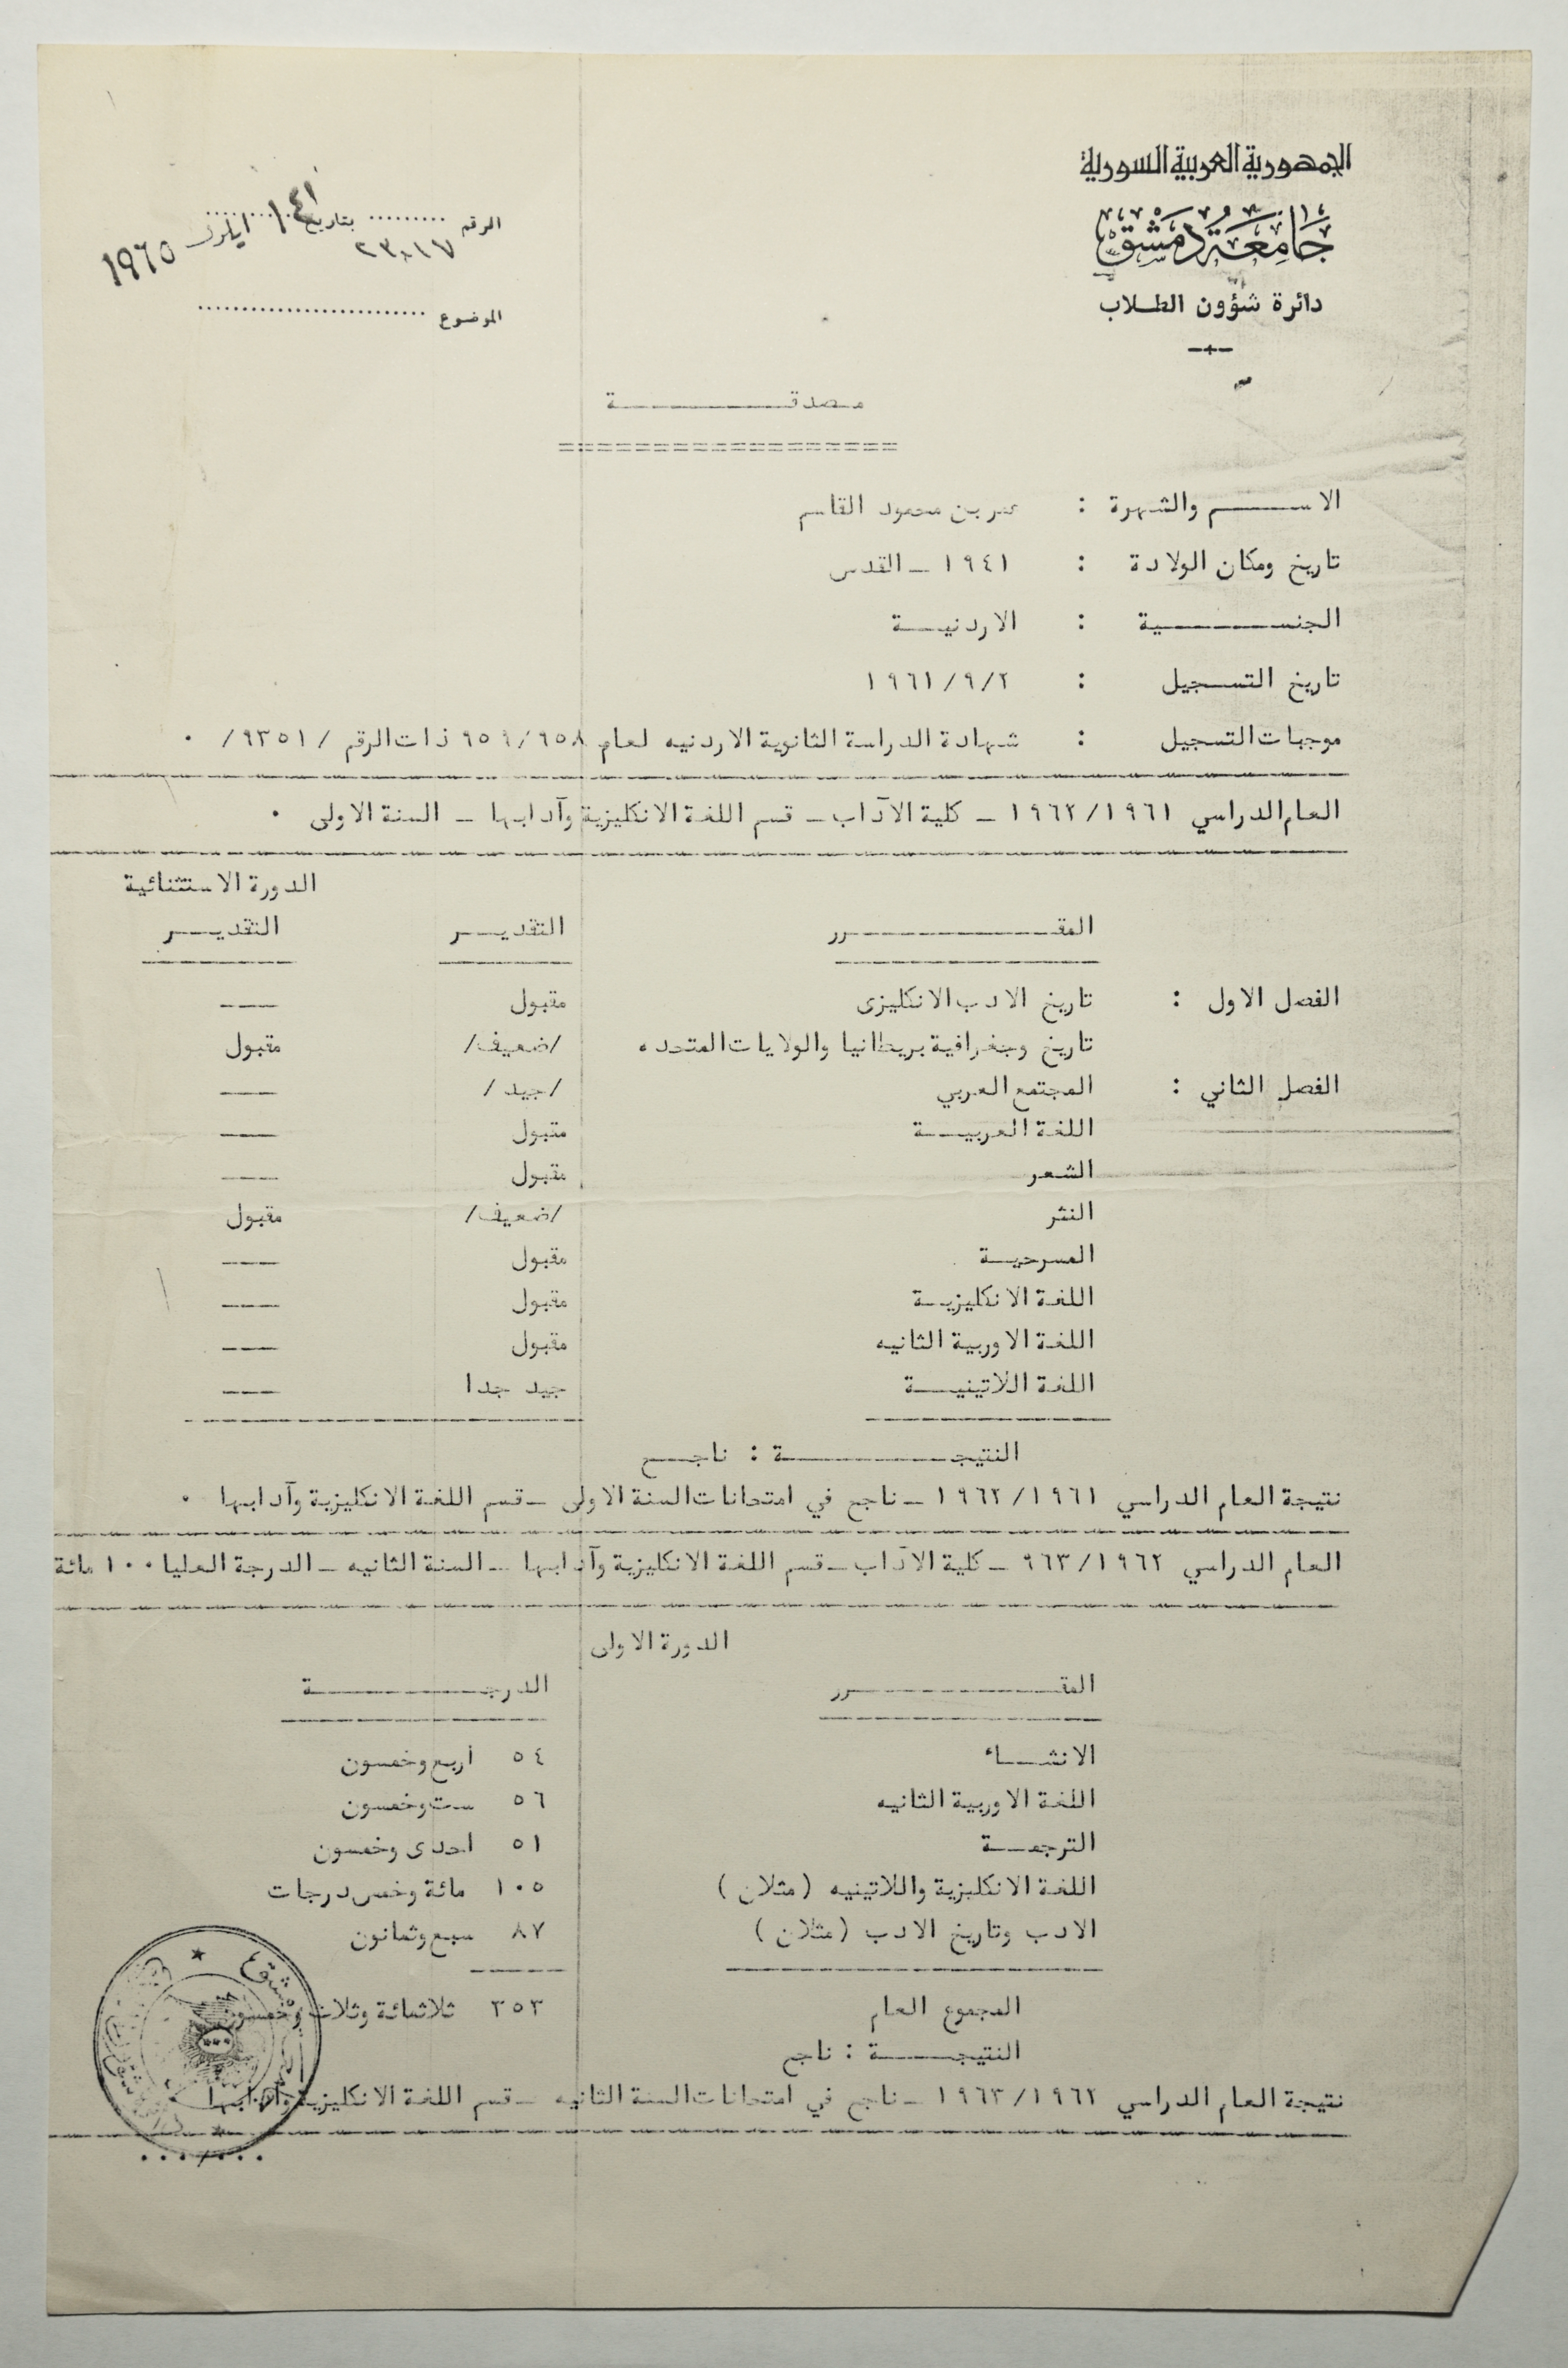 الجمهورية العربية السورية
جامعة دمشق
دائرة شؤون الطلاب
الرقم ......... بتاريخ ايلول ١٩٦٥
٢٣٠١٧
الموضوع ..........................
مصدقة
الاسم والشهرة : عمر بن محمود القاسم
تاريخ ومكان الولادة : ١٩٤١ - القدس
الجنسية : الاردنية
تاريخ التسجيل : ١٩٦١/٩/٢
موجبات التسجيل : شهادة الدراسة الثانوية الاردنيه لعام ٩٥٩/٩٥٨ ذات الرقم /٩٣٥١/ ٠
العام الدراسي ١٩٦٢/١٩٦١ - كلية الآداب - قسم اللغة الانكليزية وآدابها - السنة الاولى ٠
الدورة الاستثنائية
المقرر التقدير التقدير
الفصل الاول : تاريخ الادب الانكليزى مقبول ---
تاريخ وجغرافية بريطانيا والولايات المتحده /ضعيف/ مقبول
الفصل الثاني : المجتمع العربي /جيد/ ---
اللغة العربية مقبول ---
الشعر مقبول ---
النثر /ضعيف/ مقبول
المسرحية مقبول ---
اللغة الانكليزية مقبول ---
اللغة الاوربية الثانيه مقبول ---
اللغة اللاتينية جيد جدا ---
النتيجة : ناجح
نتيجة العام الدراسي ١٩٦٢/١٩٦١ - ناجح في امتحانات السنة الاولى - قسم اللغة الانكليزية وآدابها ٠
العام الدراسي ٩٦٣/١٩٦٢ - كلية الآداب - قسم اللغة الانكليزية وآدابها - السنة الثانيه - الدرجة العليا ١٠٠ مائة
الدورة الاولى
المقرر الدرجة
الانشاء ٥٤ اربع وخمسون
اللغة الاوربية الثانيه ٥٦ ست وخمسون
الترجمة ٥١ احدى وخمسون
اللغة الانكليزية واللاتينيه (مثلان) ١٠٥ مائة وخمس درجات
الادب وتاريخ الادب (مثلان) ٨٧ سبع وثمانون
المجموع العام ٣٥٣ ثلاثمائة وثلاث وخمسون
النتيجة : ناجح
نتيجة العام الدراسي ١٩٦٣/١٩٦٢ - ناجح في امتحانات السنة الثانيه - قسم اللغة الانكليزية وآدابها ٠
٠٠٠/٠٠٠